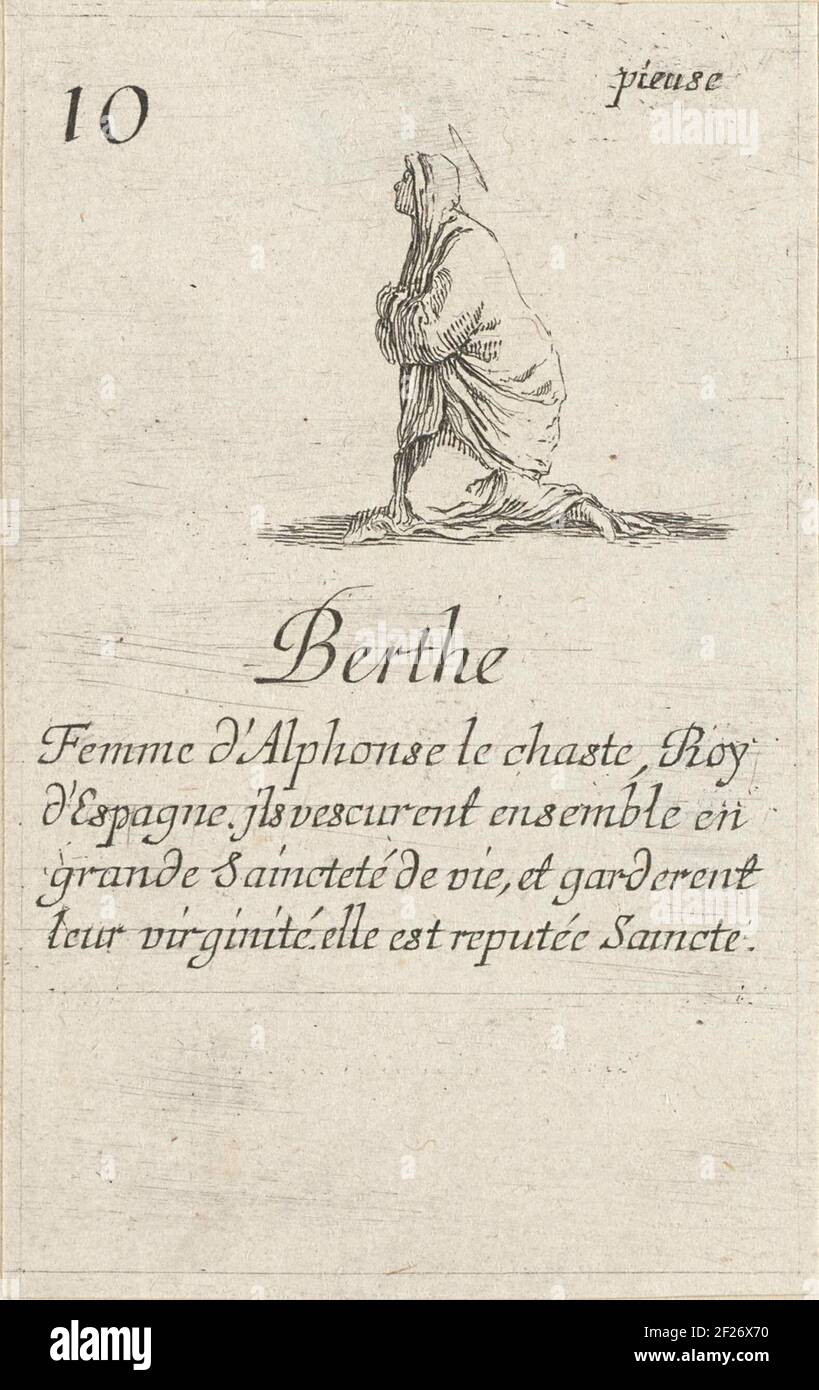 10
pieuse
Berthe
Femme d'Alphonse le chaste, Roy
d'Espagne. jls vescurent ensemble en
grande Saincteté de vie, et garderent
leur virginité. elle est reputée Saincte.
alamy
alamy
Image ID: 2F26X70
www.alamy.com